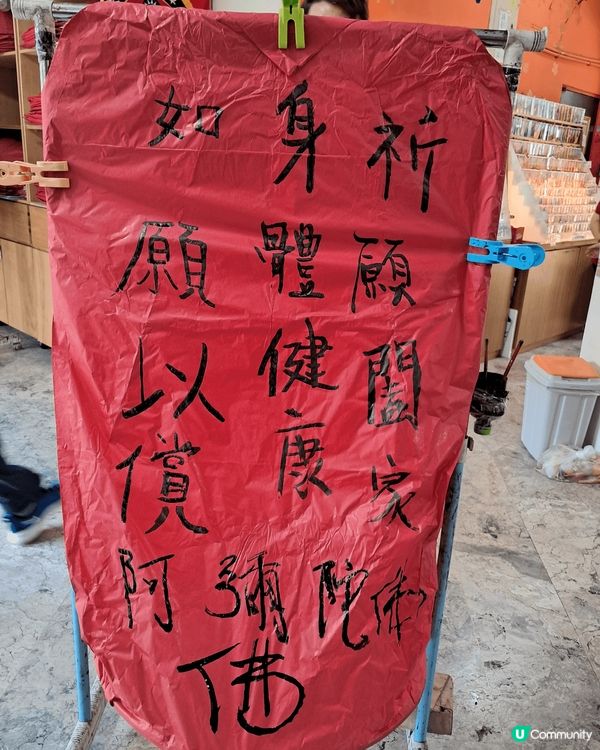 祈願闔家
身體健康
如願以償
阿彌陀
佛
U Community